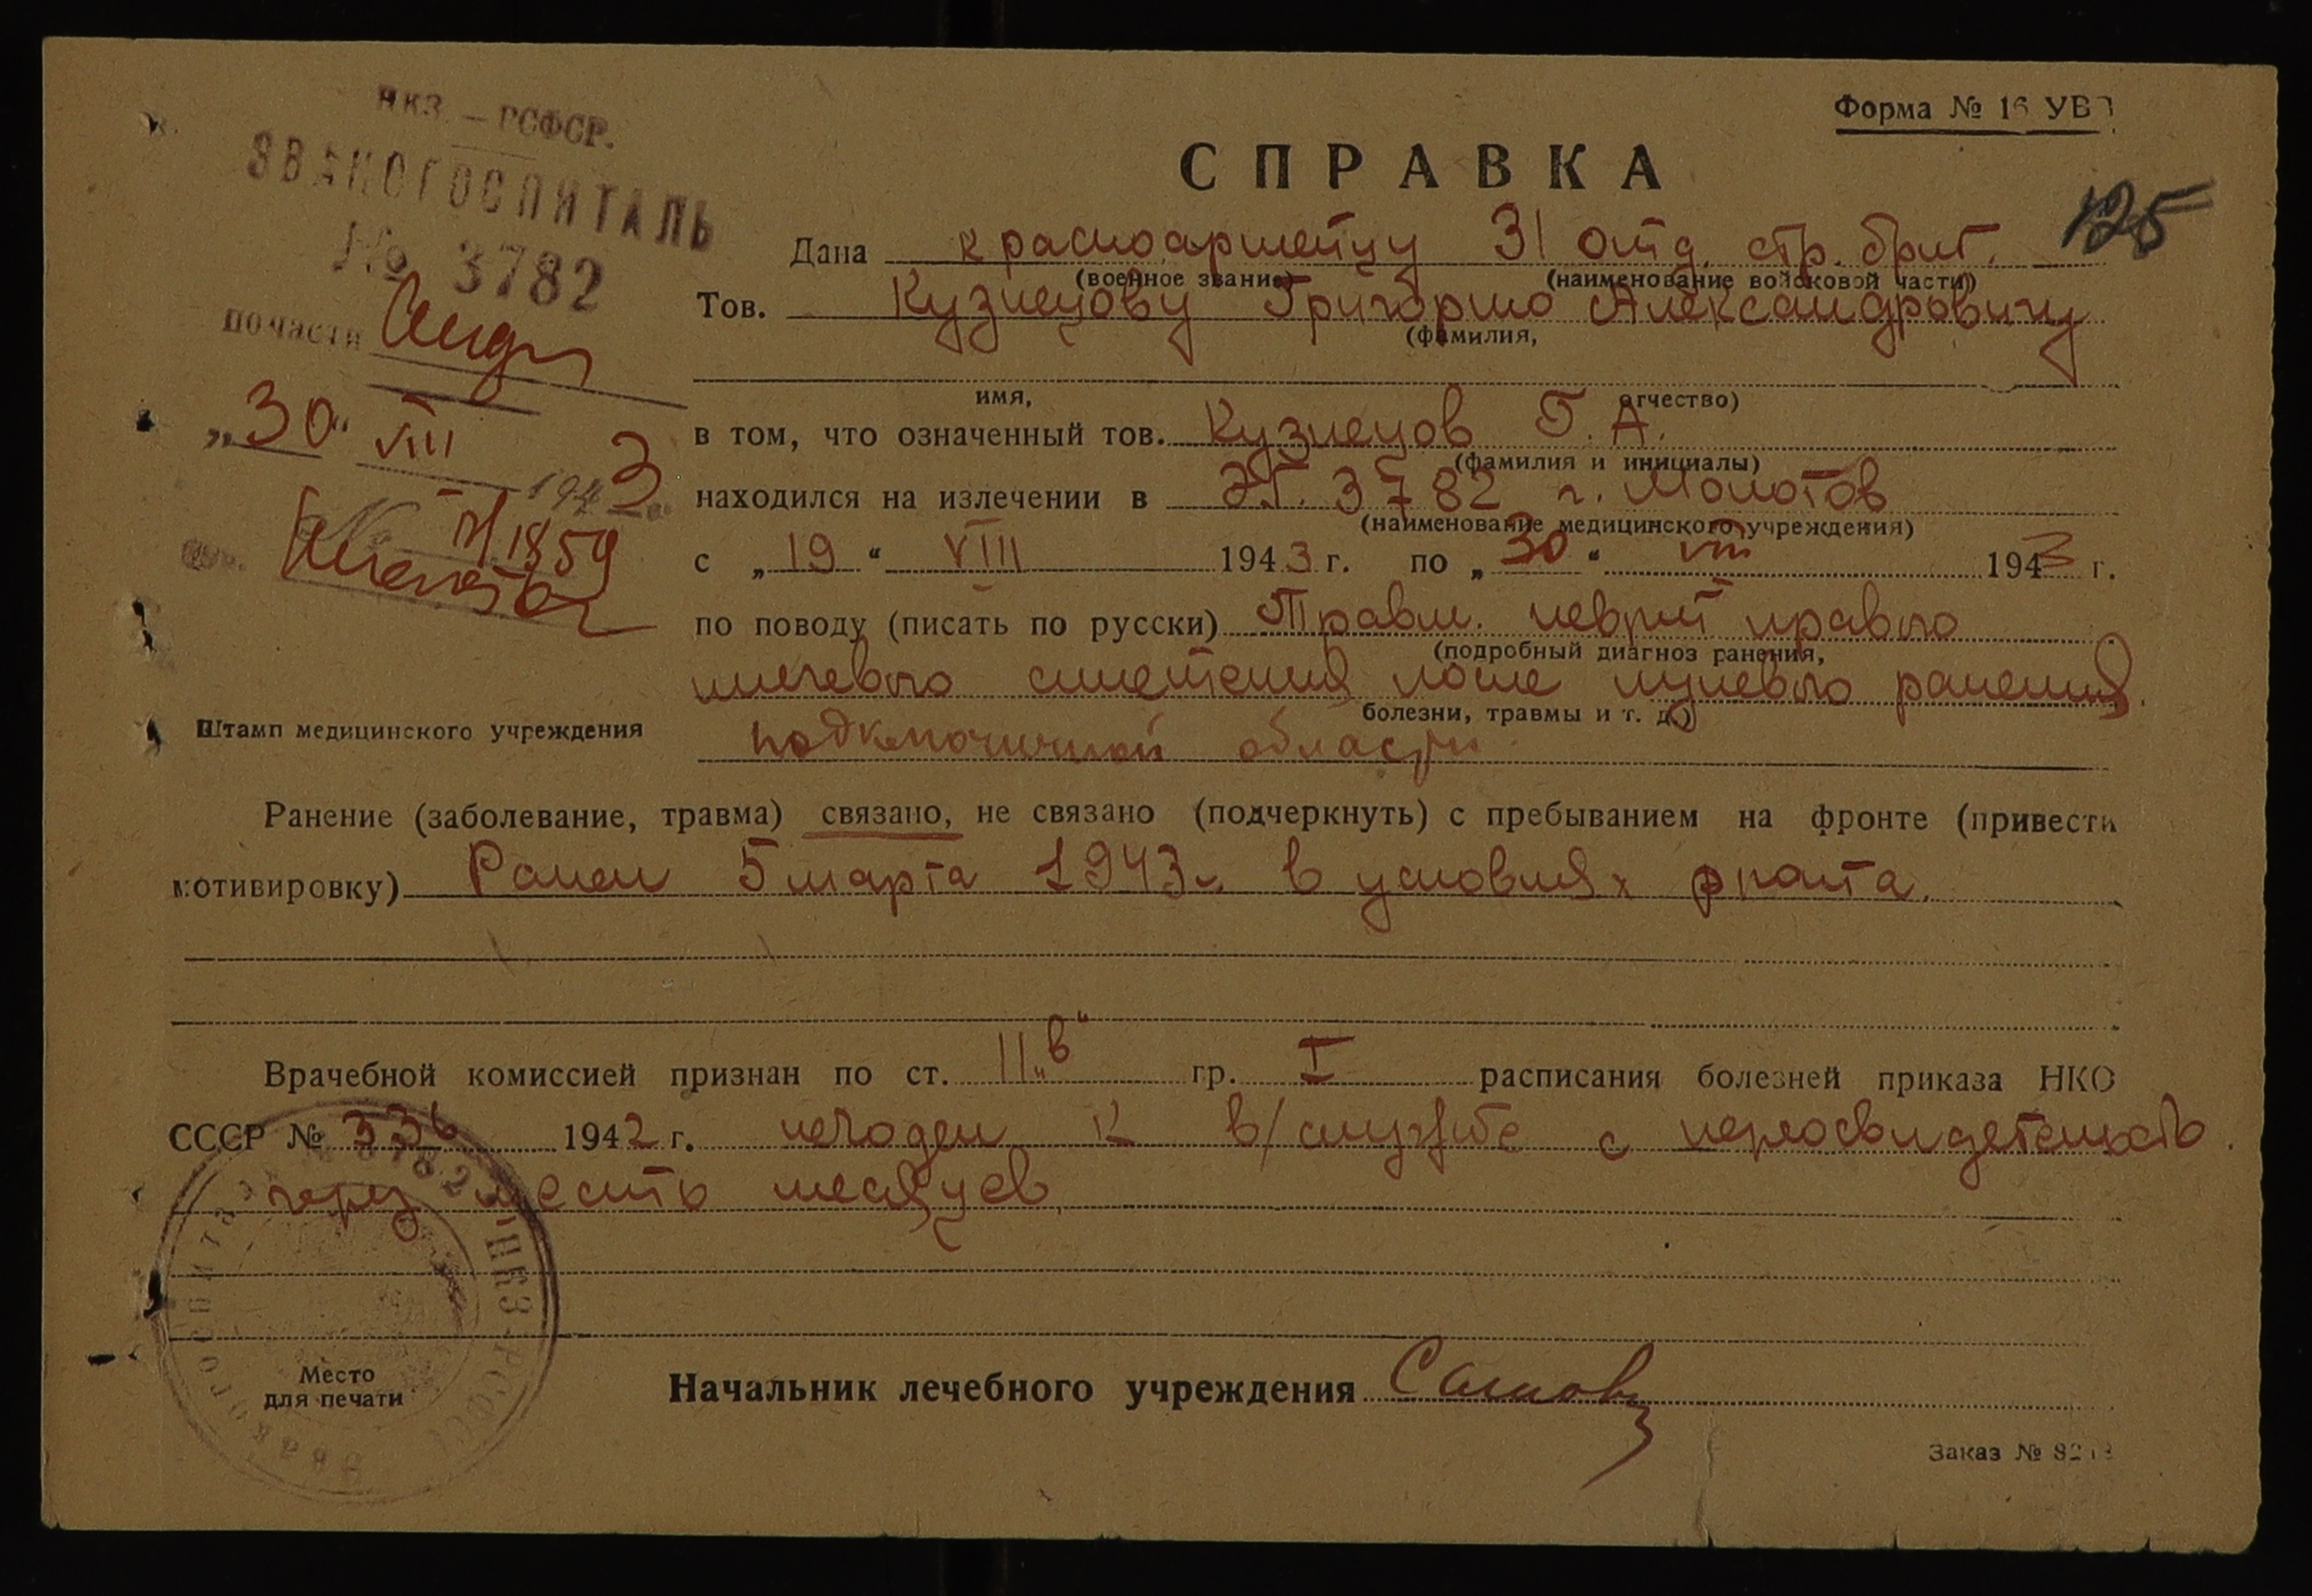 НКЗ – РСФСР.
ЭВАКОГОСПИТАЛЬ
№ 3782
по части
„30“ VIII 1943
№ п/1859
Форма № 16 УВ
СПРАВКА
125
Дана красноармейцу 31 отд. стр. бриг.
(военное звание) (наименование войсковой части)
Тов. Кузнецову Григорию Александровичу
(фамилия,
имя, отчество)
в том, что означенный тов. Кузнецов Г. А.
(фамилия и инициалы)
находился на излечении в ЭГ. 3782 г. Молотов
(наименование медицинского учреждения)
с „19“ VIII 1943 г. по „30“ VIII 1943 г.
по поводу (писать по русски) Травм. неврит правого
(подробный диагноз ранения,
плечевого сплетения после пулевого ранения
болезни, травмы и т. д.)
подключичной области.
Штамп медицинского учреждения
Ранение (заболевание, травма) связано, не связано (подчеркнуть) с пребыванием на фронте (привести
мотивировку) Ранен 5 марта 1943 г. в условиях фронта.
Врачебной комиссией признан по ст. 11„в“ гр. I расписания болезней приказа НКО
СССР № 336 1942 г. негоден к в/службе с переосвидетельств.
через шесть месяцев.
Эвакогоспиталь № 3782 НКЗ-РСФСР
Место
для печати
Начальник лечебного учреждения
Заказ №